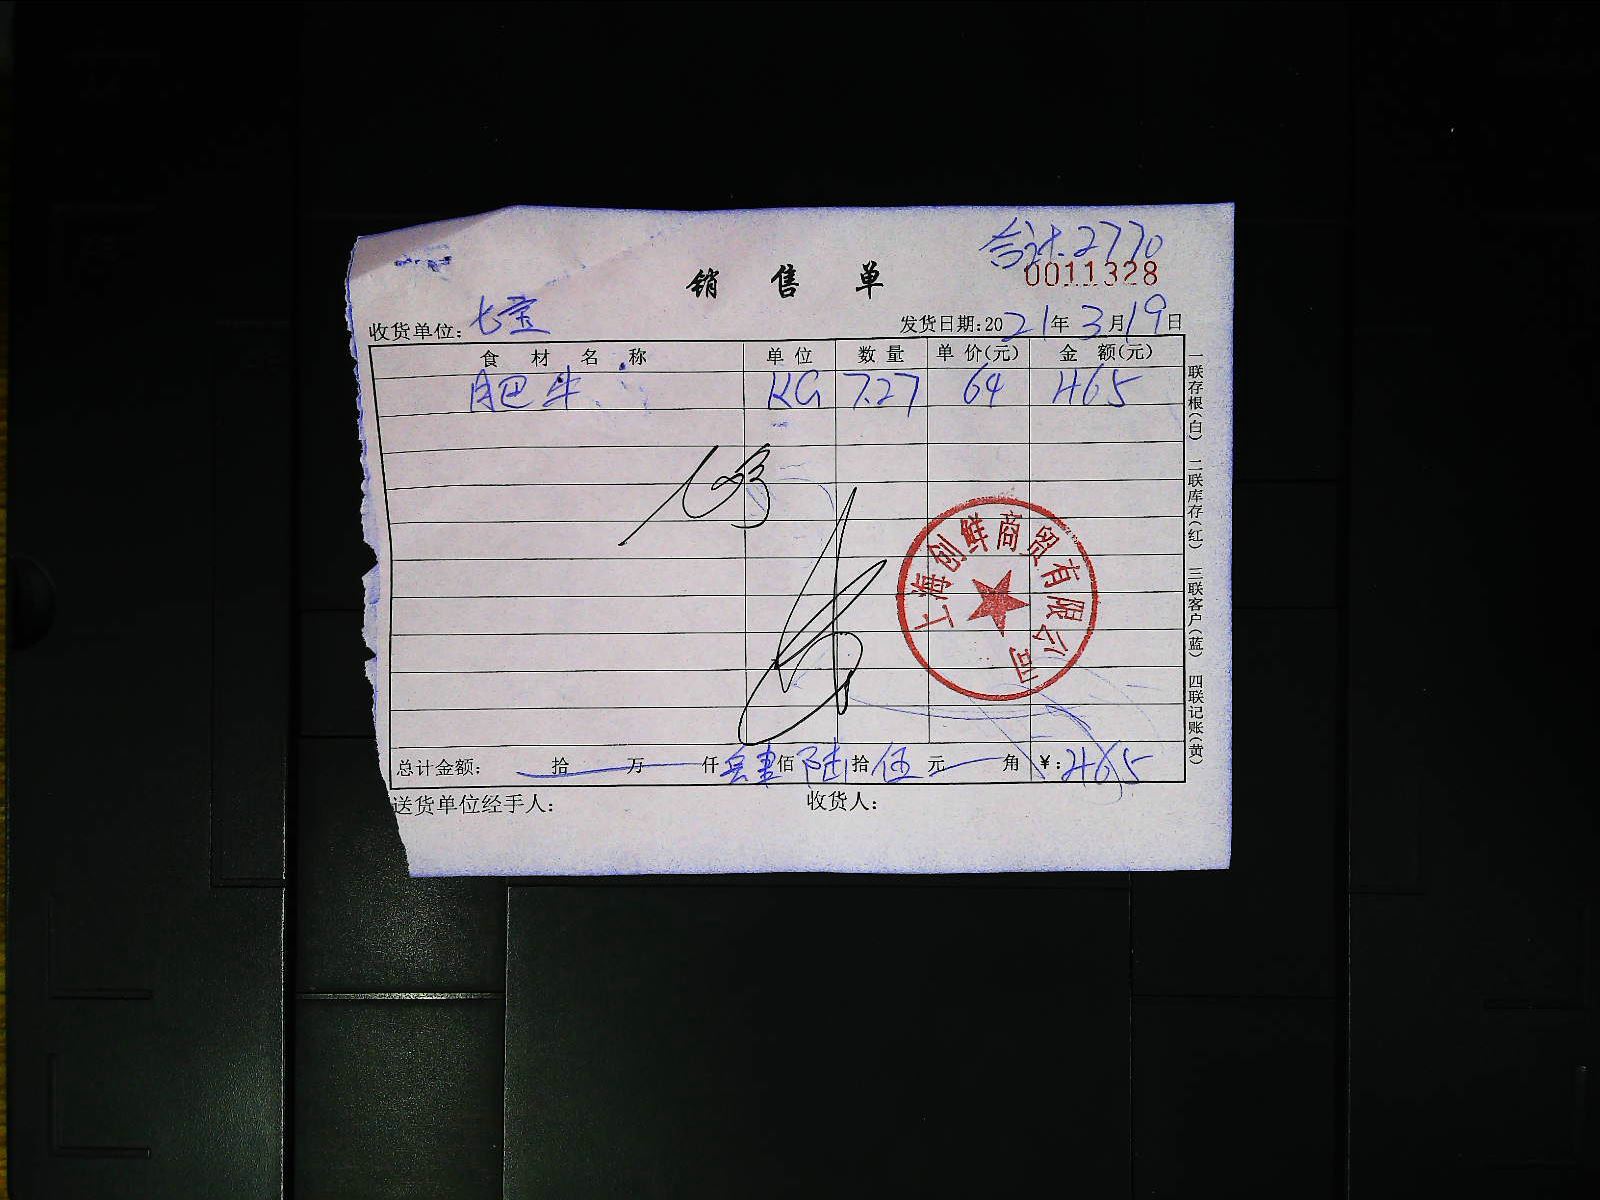 合计.2770
销售单
0011328
收货单位: 七宝
发货日期:2021年3月19日
食材名称 单位 数量 单价(元) 金额(元)
肥牛 KG 7.27 64 465
上海创鲜商贸有限公司
总计金额: 拾 万 仟 肆佰 陆拾 伍元 角 ¥:465
送货单位经手人: 收货人:
一联存根(白) 二联库存(红) 三联客户(蓝) 四联记账(黄)